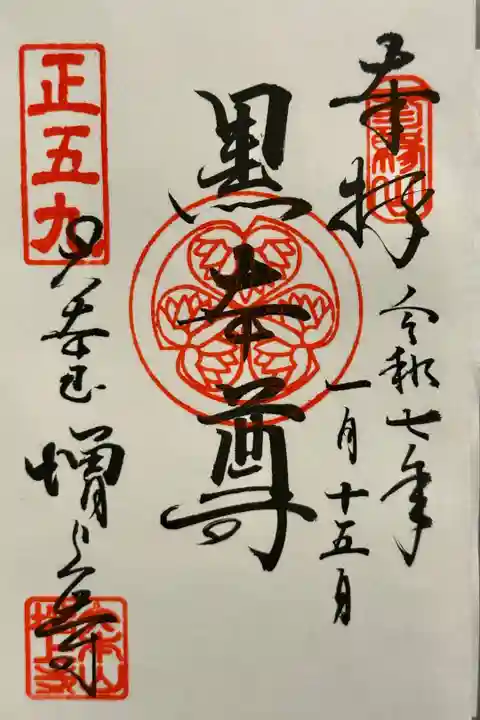 奉拝
令和七年
一月十五日
黒本尊
正五九
大本山 増上寺